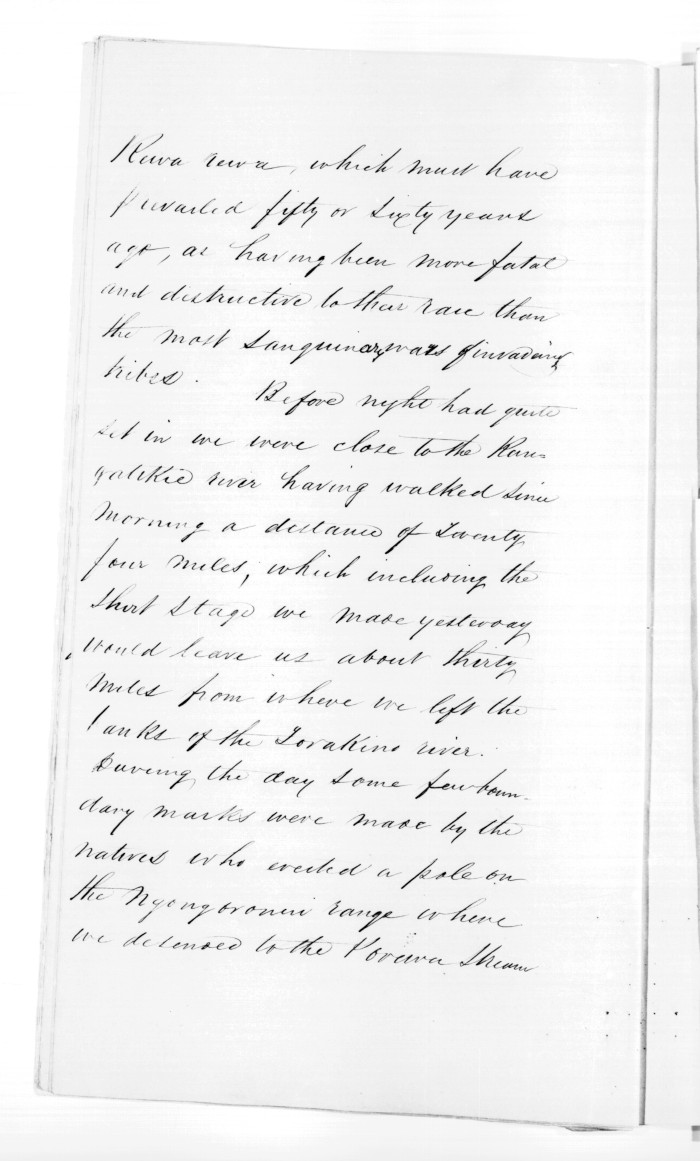 Rewa rewa, which must have
prevailed fifty or sixty years
ago, as having been more fatal
and destructive to their race than
the most sanguinary wars of invading
tribes. Before night had quite
set in we were close to the Ran=
gatikie river having walked since
morning a distance of Twenty
four miles, which including the
short stage we made yesterday
would leave us about thirty
miles from where we left the
banks of the Turakino river.
During the day some few boun-
dary marks were made by the
natives who erected a pole on
the range where
we descended to the Porewa Stream